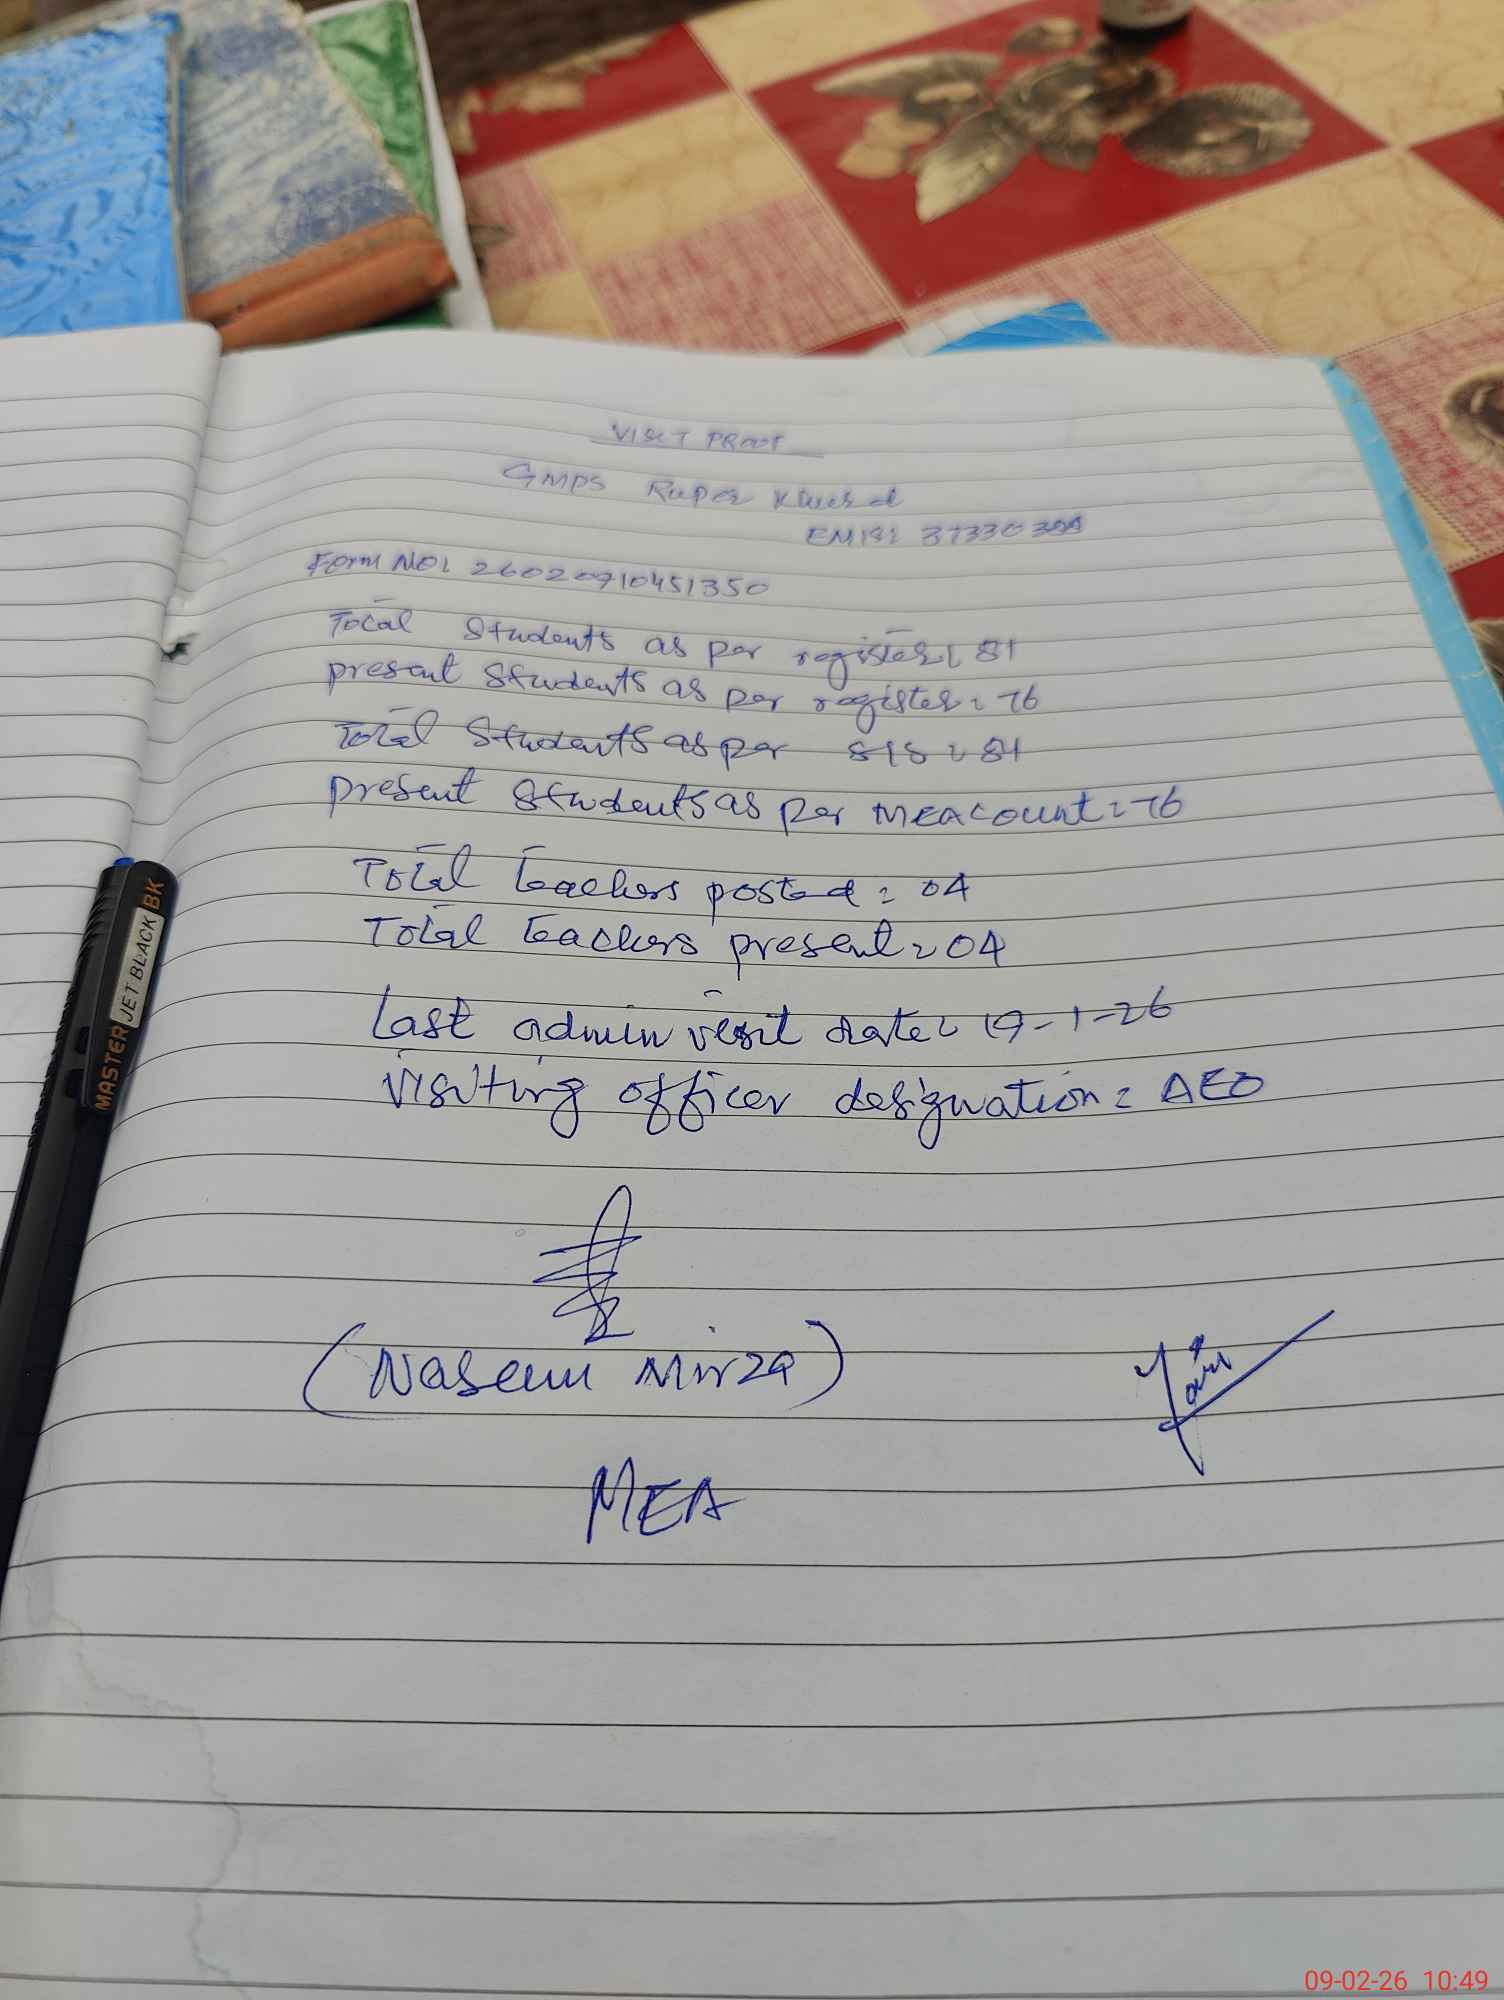 VISIT PROOF
GMPS Rupor Khurd
EMIS: 37330
Form NO: 26020910451350
Total Students as per register: 81
present students as per register: 76
Total Students as per SIS: 81
present Students as per MEA count: 76
Total teachers posted: 04
Total teachers present: 04
Last admin visit date: 19-1-26
Visiting officer designation: AEO
(Naseem Mirza)
MEA
MASTER JET BLACK BK
09-02-26 10:49